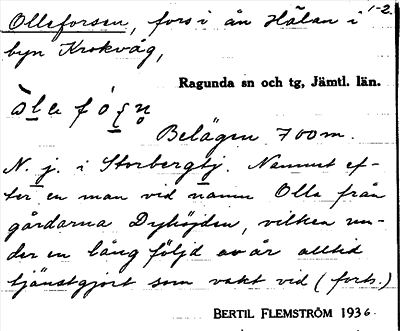 Olleforsen, fors i ån Hälan i 1-2.
byn Krokvåg,
Ragunda sn och tg, Jämtl. län.
Belägen 700 m.
N. j. i Storbergtj. Namnet ef-
ter en man vid namn Olle från
gårdarna Dyhöjden, vilken un-
der en lång följd av år alltid
tjänstgjort som vakt vid (forts.)
BERTIL FLEMSTRÖM 1936.